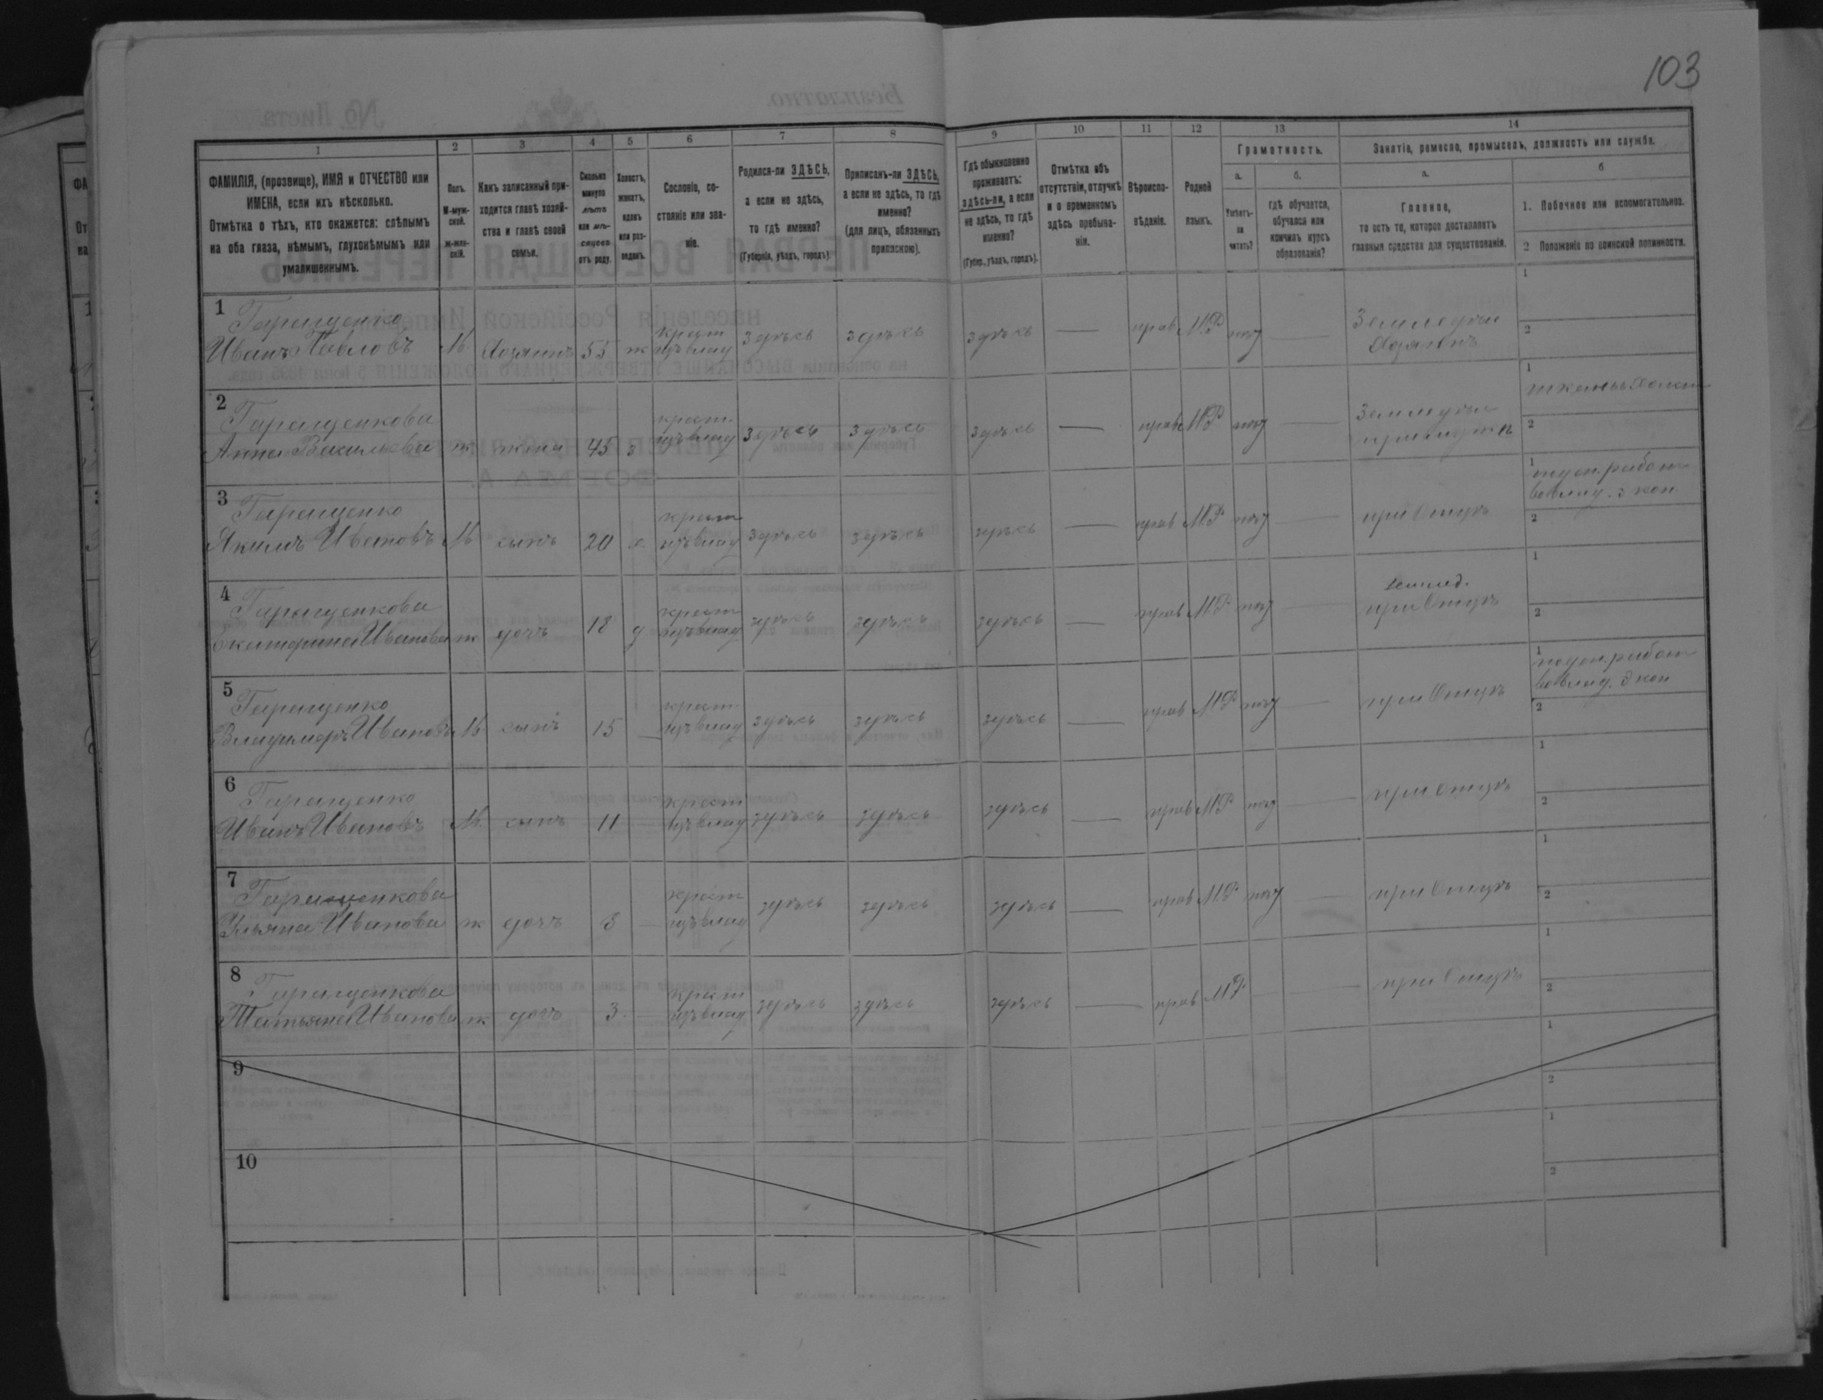 103
1
2
3
4
5
6
7
8
9
10
11
12
13
14
ФАМИЛІЯ, (прозвище), ИМЯ и ОТЧЕСТВО или
ИМЕНА, если ихъ нѣсколько.
Отмѣтка о тѣхъ, кто окажется: слѣпымъ
на оба глаза, нѣмымъ, глухонѣмымъ или
умалишеннымъ.
Полъ.
М-муж-
ской.
ж-жен-
скій.
Какъ записанный при-
ходится главѣ хозяй-
ства и главѣ своей
семьи.
Сколько
минуло
лѣтъ
или мѣ-
сяцевъ
отъ роду.
Холостъ,
женатъ,
вдовъ
или раз-
веденъ.
Сословіе, со-
стояніе или зва-
ніе.
Родился-ли ЗДѢСЬ,
а если не здѣсь,
то гдѣ именно?
(Губернія, уѣздъ, городъ).
Приписанъ-ли ЗДѢСЬ,
а если не здѣсь, то гдѣ
именно?
(для лицъ, обязанныхъ
припискою).
Гдѣ обыкновенно
проживаетъ:
здѣсь-ли, а если
не здѣсь, то гдѣ
именно?
(Губер., уѣздъ, городъ).
Отмѣтка объ
отсутствіи, отлучкѣ
и о временномъ
здѣсь пребыва-
ніи.
Вѣроиспо-
вѣданіе.
Родной
языкъ.
Грамотность.
а.
Умѣетъ-
ли
читать?
б.
гдѣ обучается,
обучался или
кончилъ курсъ
образованія?
Занятіе, ремесло, промыселъ, должность или служба.
а.
Главное,
то есть то, которое доставляетъ
главныя средства для существованія.
б
1. Побочное или вспомогательное.
2 Положеніе по воинской повинности.
1 Геращенко
Иванъ Павловъ М Хозяинъ 55 ж крест изъ влад здѣсь здѣсь здѣсь — прав М.Р нѣт — Земледѣл Хозяинъ 1 2
2 Геращенкова
Анна Васильева ж жена 45 з крест изъ влад здѣсь здѣсь здѣсь — прав М.Р нѣт — Земледѣл при мужѣ 1 2
3 Геращенко
Якимъ Ивановъ М сынъ 20 х крест изъ влад здѣсь здѣсь здѣсь — прав М.Р нѣт — при отцѣ 1 поден. работ 2
4 Геращенкова
Екатерина Иванова ж дочь 18 д крест изъ влад здѣсь здѣсь здѣсь — прав М.Р нѣт — землед. при отцѣ 1 2
5 Геращенко
Владимеръ Ивановъ М сынъ 15 — крест изъ влад здѣсь здѣсь здѣсь — прав М.Р нѣт — при отцѣ 1 поден. работ 2
6 Геращенко
Иванъ Ивановъ М. сынъ 11 крест изъ влад здѣсь здѣсь здѣсь — прав М.Р нѣт — при отцѣ 1 2
7 Геращенкова
Ульяна Иванова ж дочь крест изъ влад здѣсь здѣсь здѣсь — прав М.Р нѣт — при отцѣ 1 2
8 Геращенкова
Татьяна Иванова ж дочь 3 — крест изъ влад здѣсь здѣсь здѣсь — прав М.Р. — при отцѣ 1 2
9 1 2
10 1 2